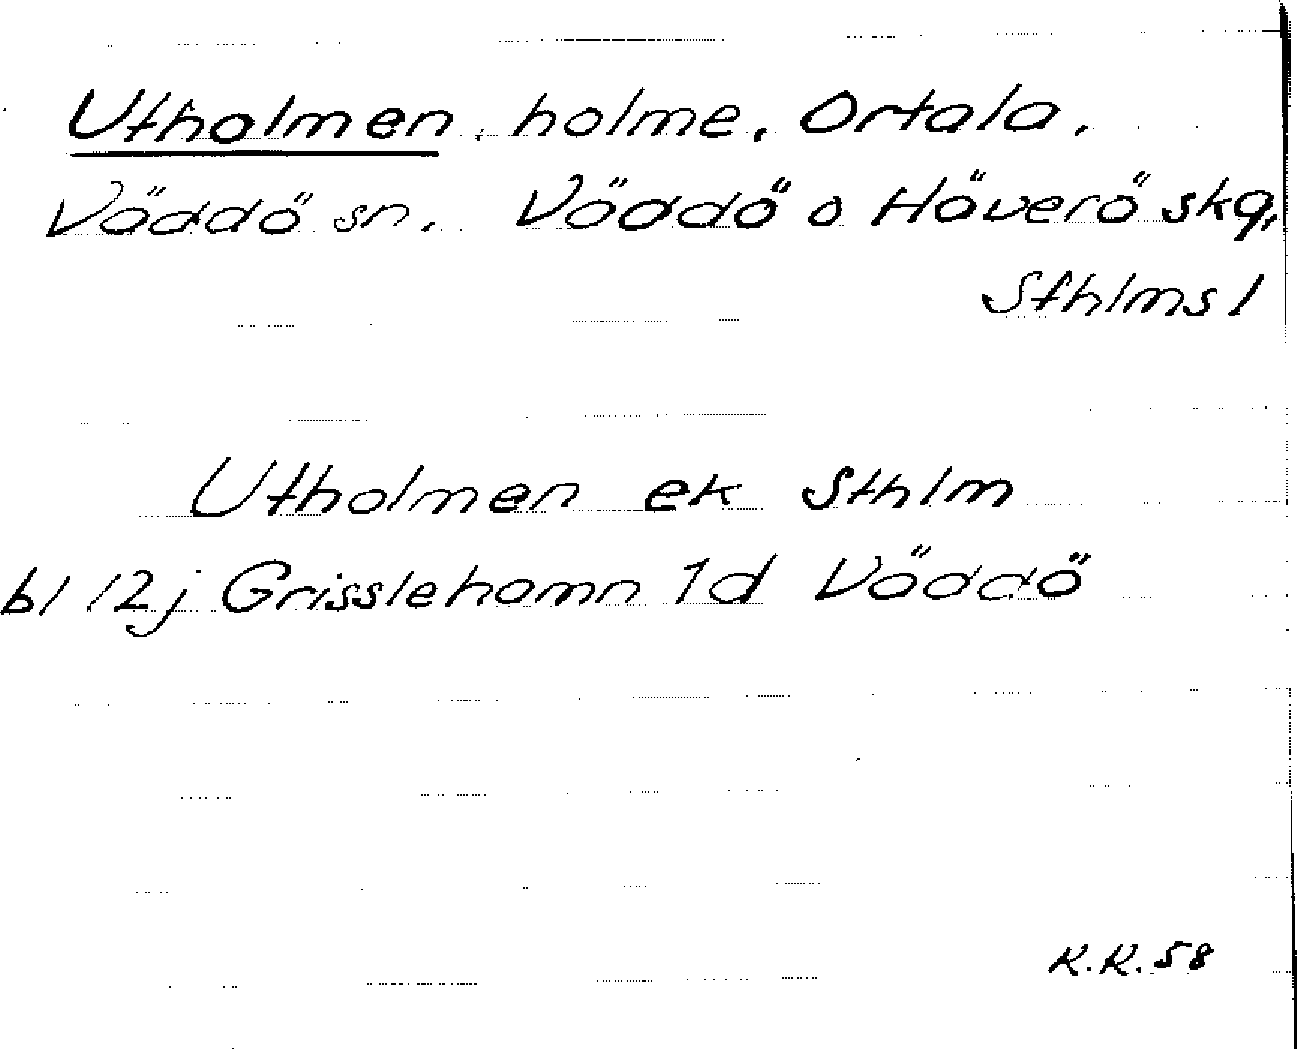 Utholmen, holme, Ortala,
Väddö sn. Väddö o Häverö skg,
Sthlms l
Utholmen ek Sthlm
bl 12j Grisslehamn 1d Väddö
K.R.58